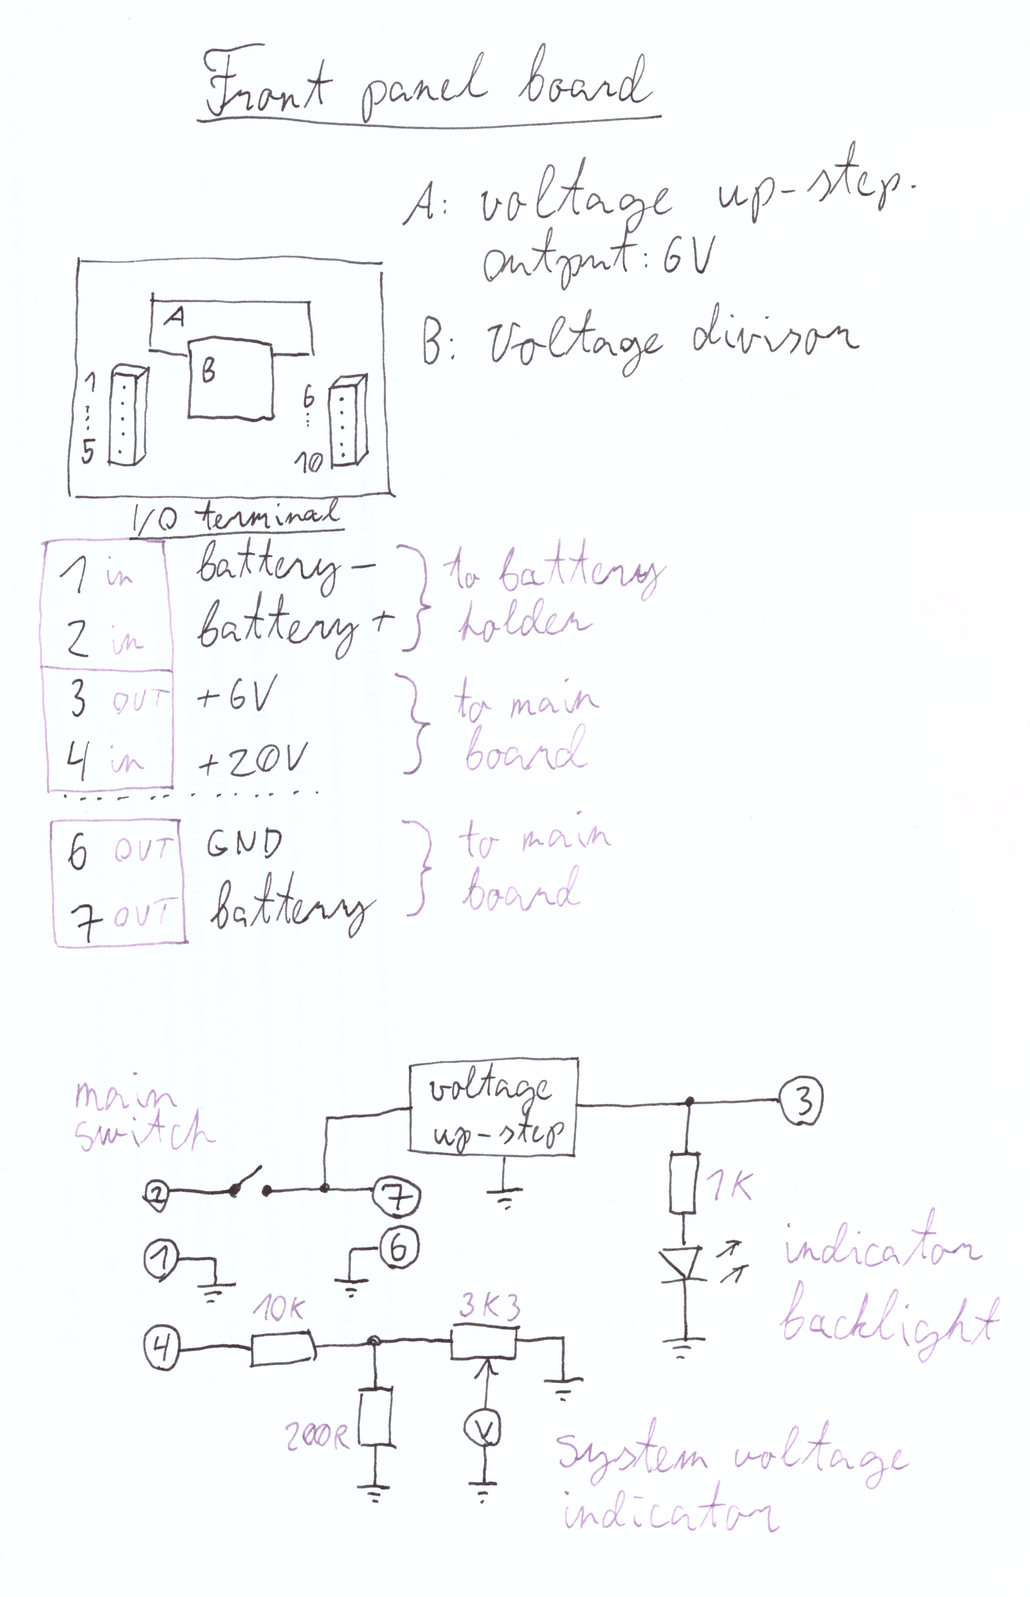 Front panel board
A: voltage up-step.
output: 6V
B: Voltage divison
A
B
1
5
6
10
I/O terminal
1 in battery - to battery
2 in battery + holder
3 OUT +6V to main
4 in +20V board
6 OUT GND to main
7 OUT battery board
main
switch
voltage
up-step
3
2
7
1K
1
6
indicator
backlight
10K
3K3
4
200R
V
system voltage
indicator